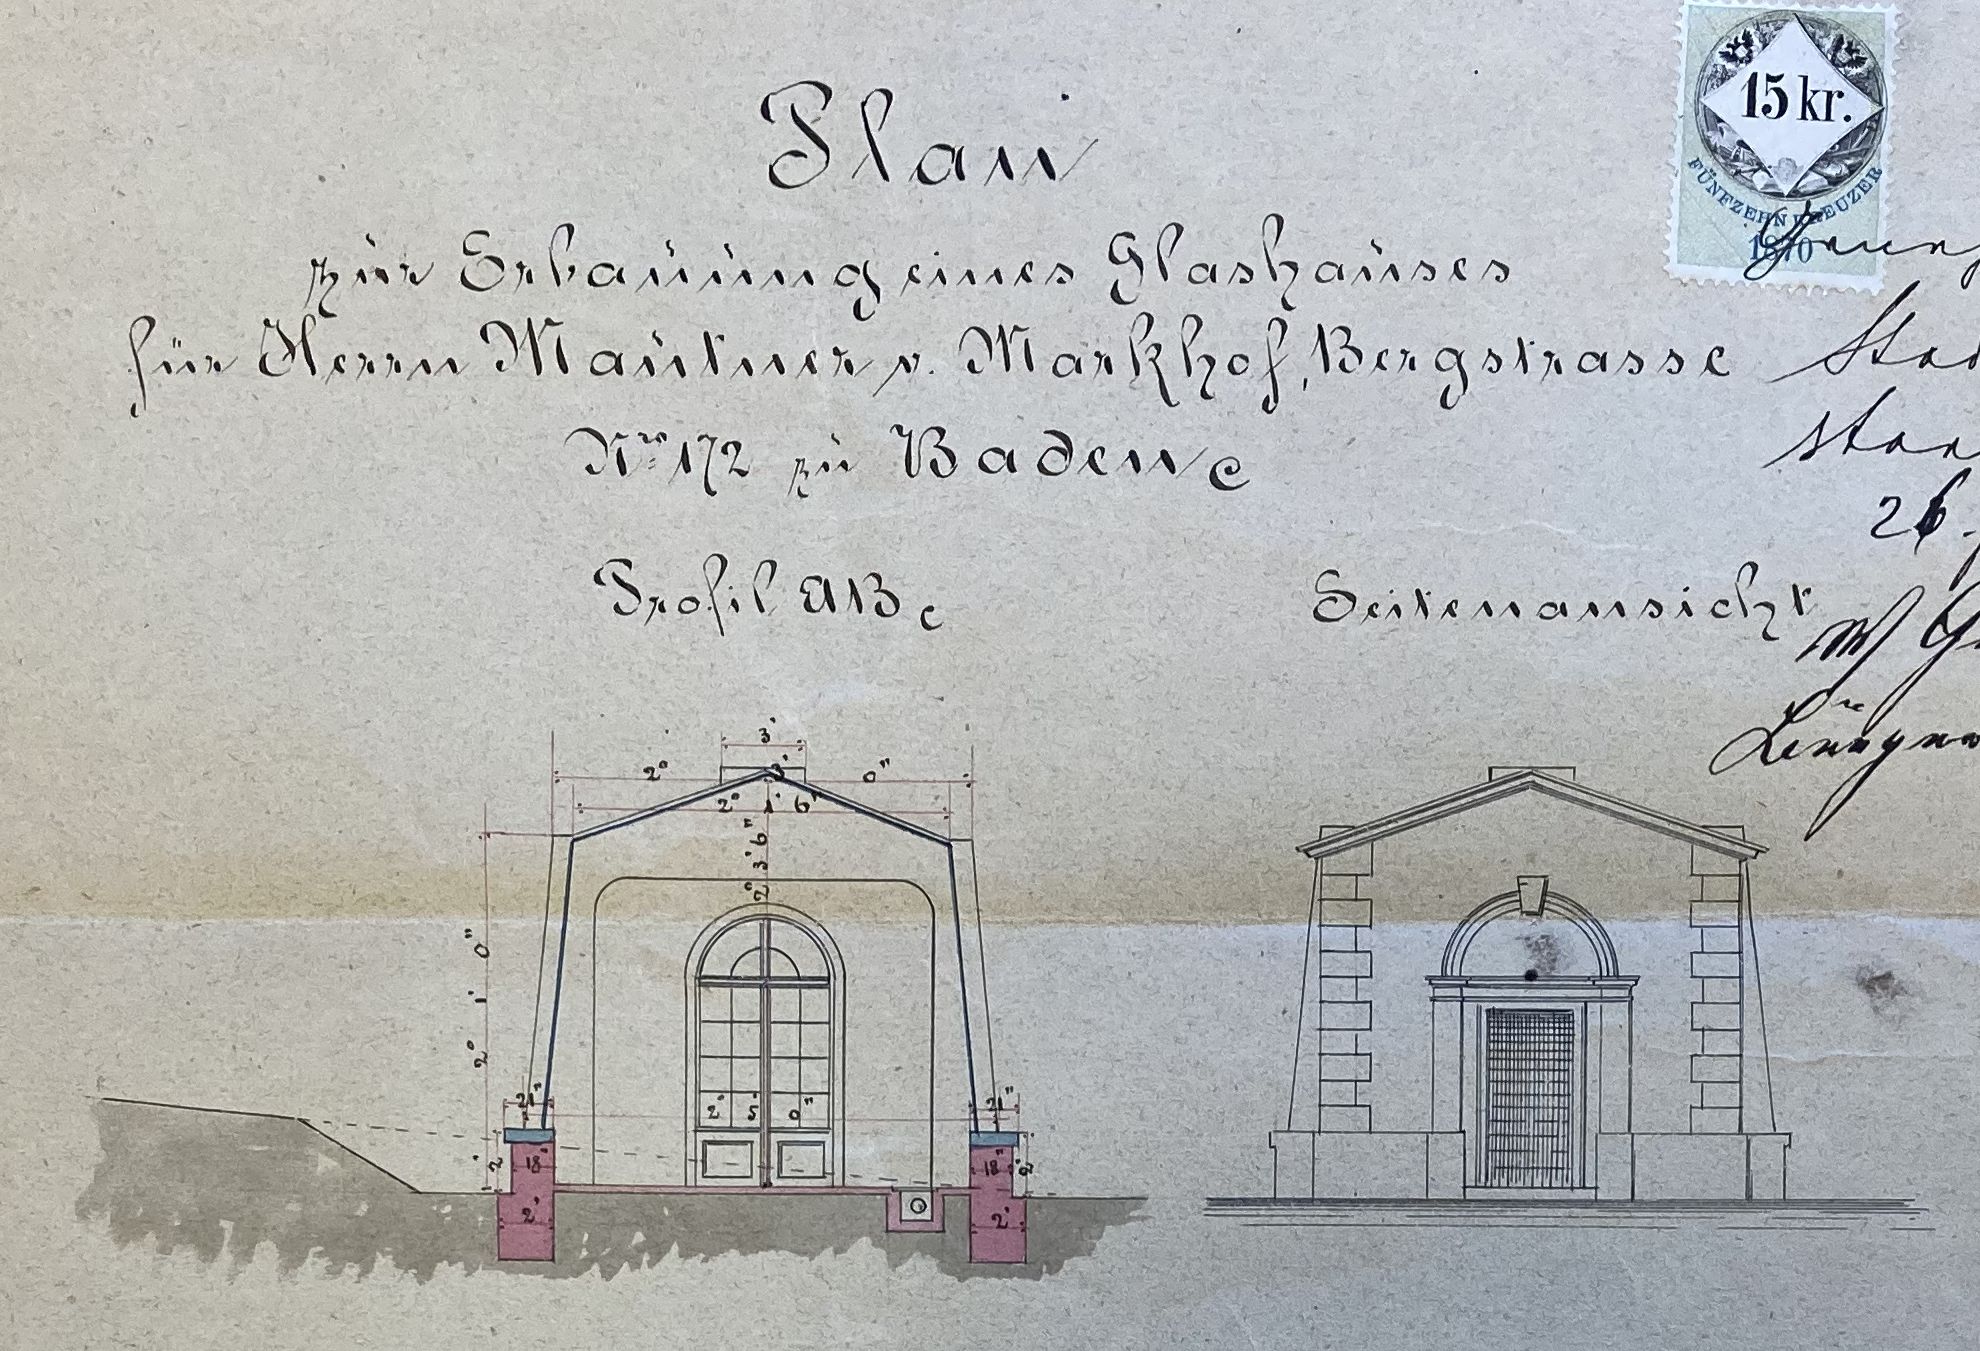 Plan
zur Erbauung eines Glashauses
für Herrn Mautner v. Markhof, Bergstrasse
Nro 172 zu Baden
Profil AB
Seitenansicht
15 kr.
FÜNFZEHN KREUZER
1870
26.
3'
2° 3' 0"
2° 1' 6"
2° 3' 6"
2° 1' 0"
21"
21"
2° 5' 0"
2'
18"
18"
2'
2'
2'